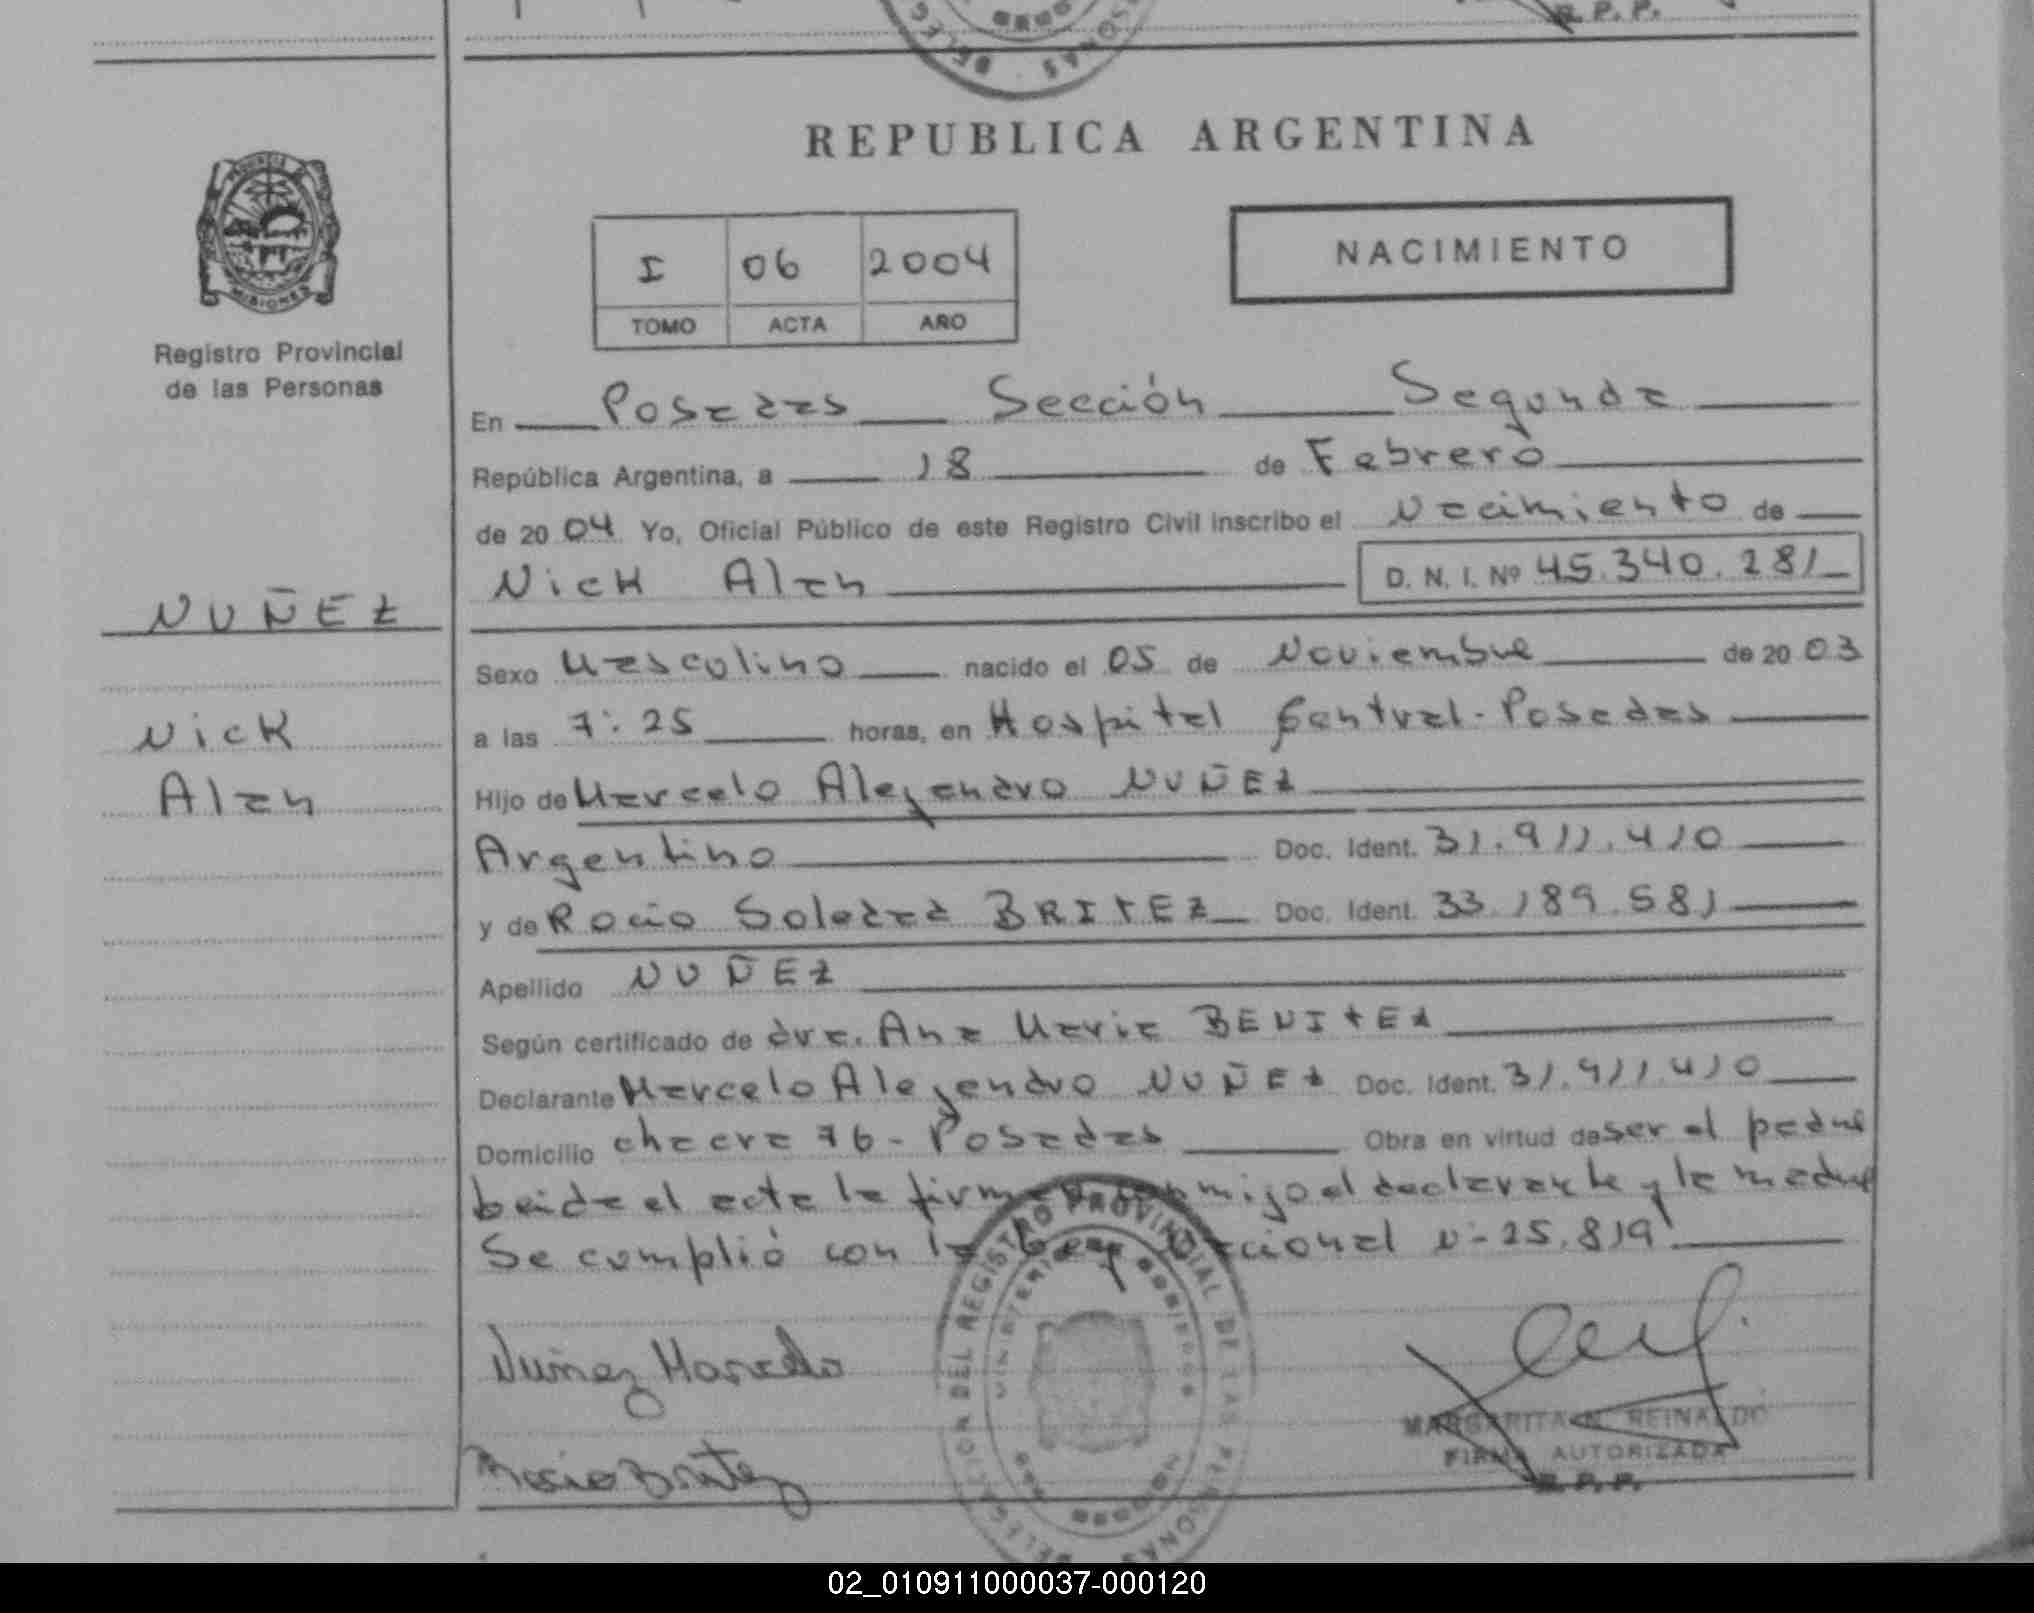 R.P.P.
DELEG
SONAS
REPUBLICA ARGENTINA
PROVINCIA
MISIONES
I 06 2004
TOMO ACTA AÑO
NACIMIENTO
Registro Provincial
de las Personas
En Posadas Sección Segunda
República Argentina, a 18 de Febrero
de 2004 Yo, Oficial Público de este Registro Civil inscribo el Nacimiento de
Nick Alan D. N. I. Nº 45.340.281
NUÑEZ
Sexo Masculino nacido el 05 de Noviembre de 2003
Nick
a las 7:25 horas, en Hospital Central-Posadas
Alan
Hijo de Marcelo Alejandro NUÑEZ
Argentino Doc. Ident. 31.911.410
y de Rocio Soledad BRITEZ Doc. Ident. 33.189.581
Apellido NUÑEZ
Según certificado de dra. Ana Maria BENITEZ
Declarante Marcelo Alejandro NUÑEZ Doc. Ident. 31.911.410
Domicilio chacra 76 - Posadas Obra en virtud de ser el padre
Leida el acta la firman conmigo el declarante y la madre
Se cumplió con la Ley Nacional Nº 25.819
Nuñez Marcelo
Rocio Britez
DELEGACION DEL REGISTRO PROVINCIAL DE LAS PERSONAS
MINISTERIO DE GOBIERNO
MARGARITA N. REINALDO
FIRMA AUTORIZADA
R.P.P.
02_010911000037-000120